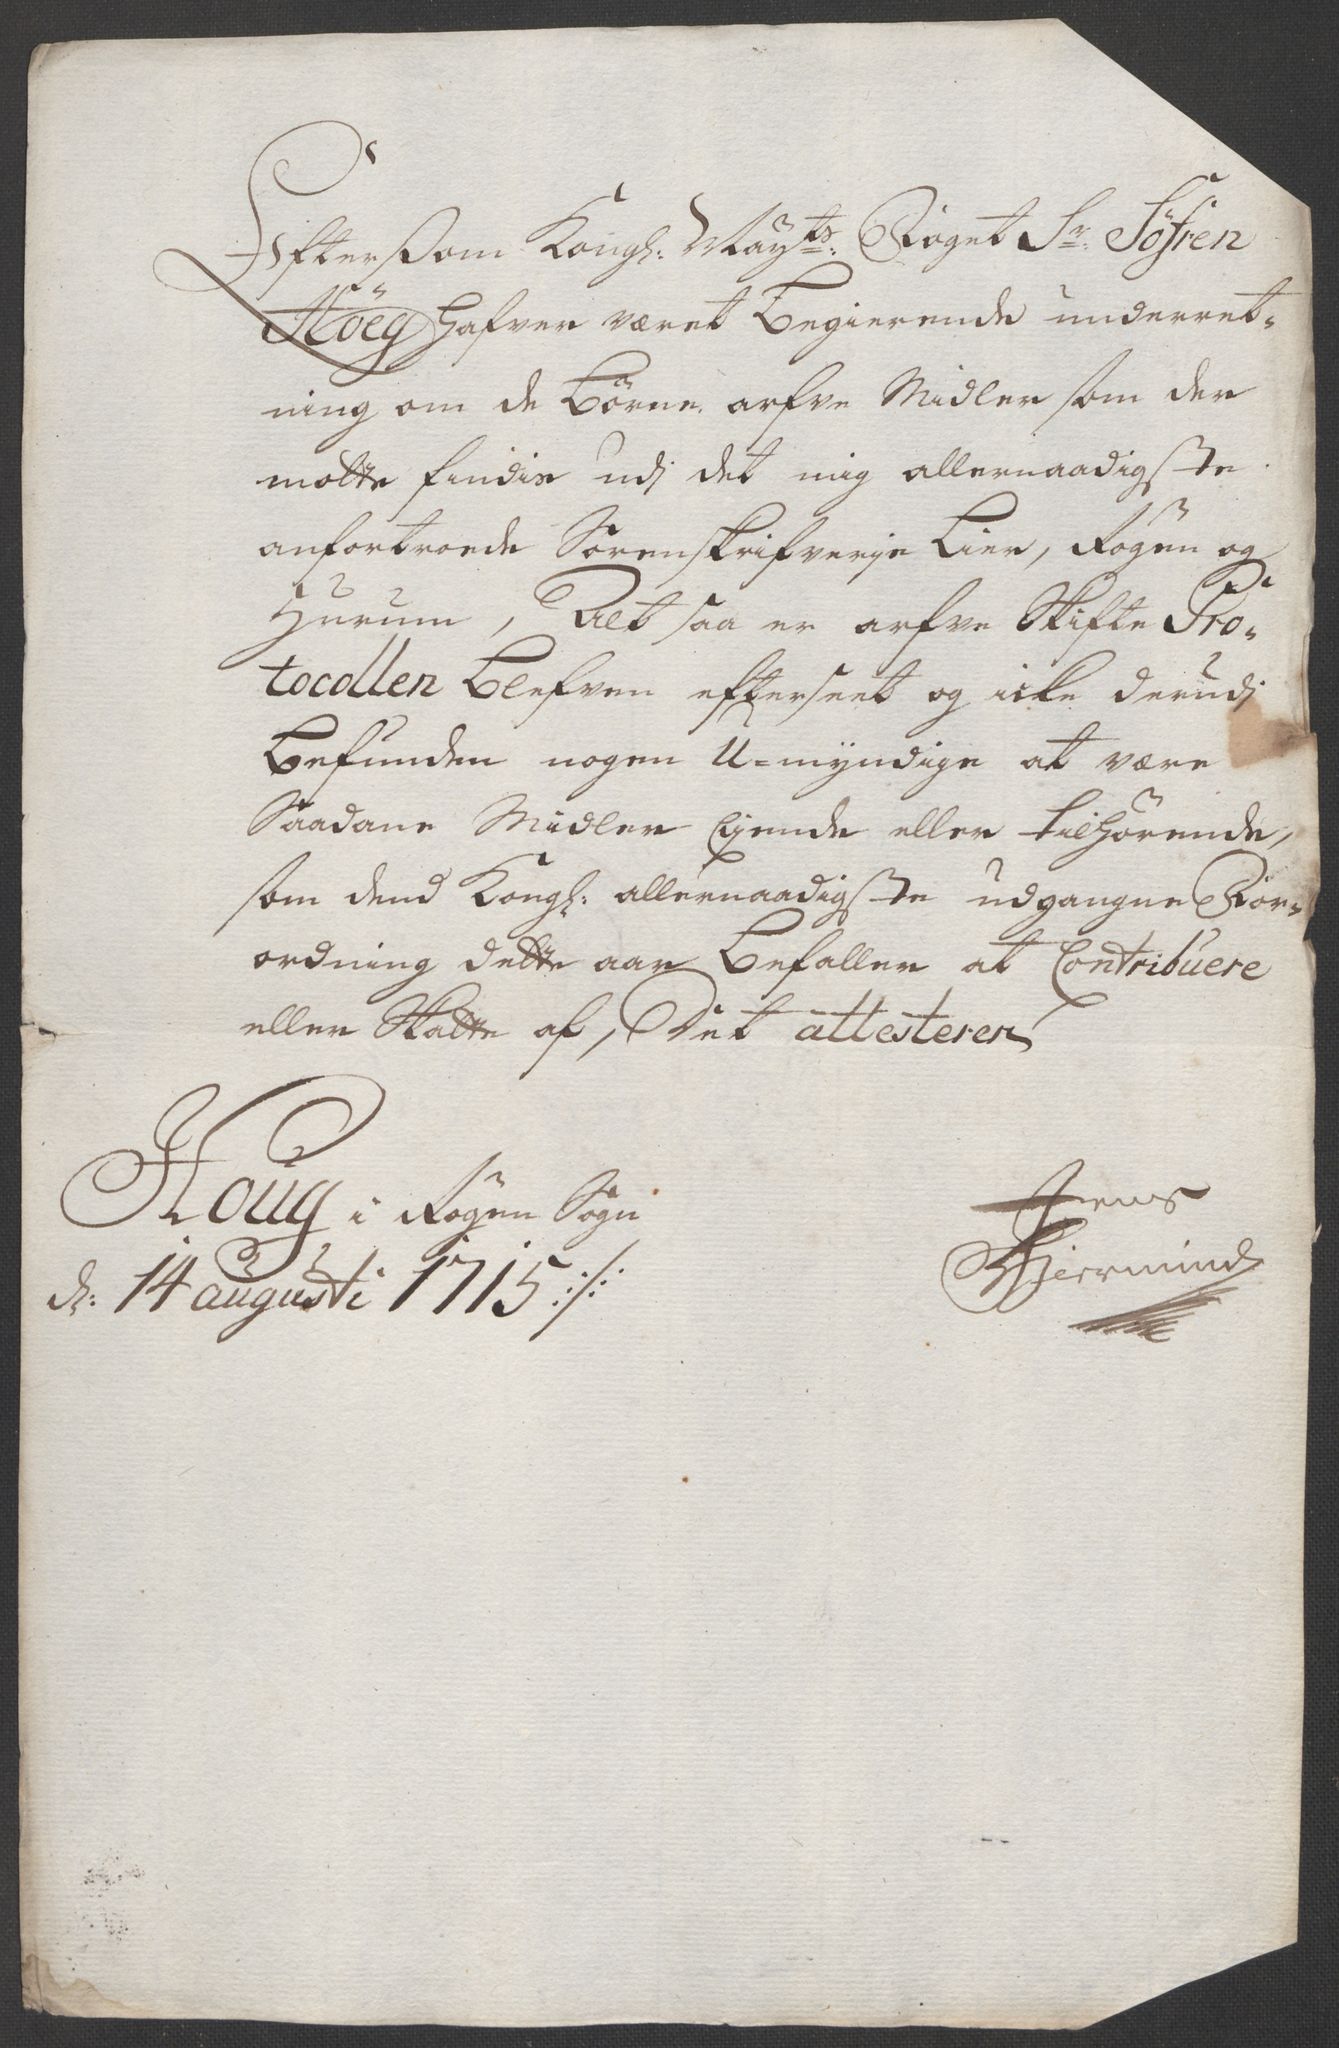 Eftersom Kongl: Mayts: Foget Sr: Söfren
Höeg hafver været Begierende underret-
ning om de Börne arfve Midler som der
motte findis udj det mig allernaadigste
anfortroede Sorenskrifverje Lier, Rogen og
Hurum, Alt saa er arfve Skifte Pro-
tocollen Blefven efterseet og icke derudj
Befunden nogen U-myndige at være
Saadane Midler Ejende eller tilhörende,
som dend Kongl: allernaadigste udgangne For-
ordning dette aar Befaller at Contribuere
eller Skatte af, Det attesterer
Houg i Rogen Sogn
d: 14 augusti 1715 ://:
Jens
Hiermind